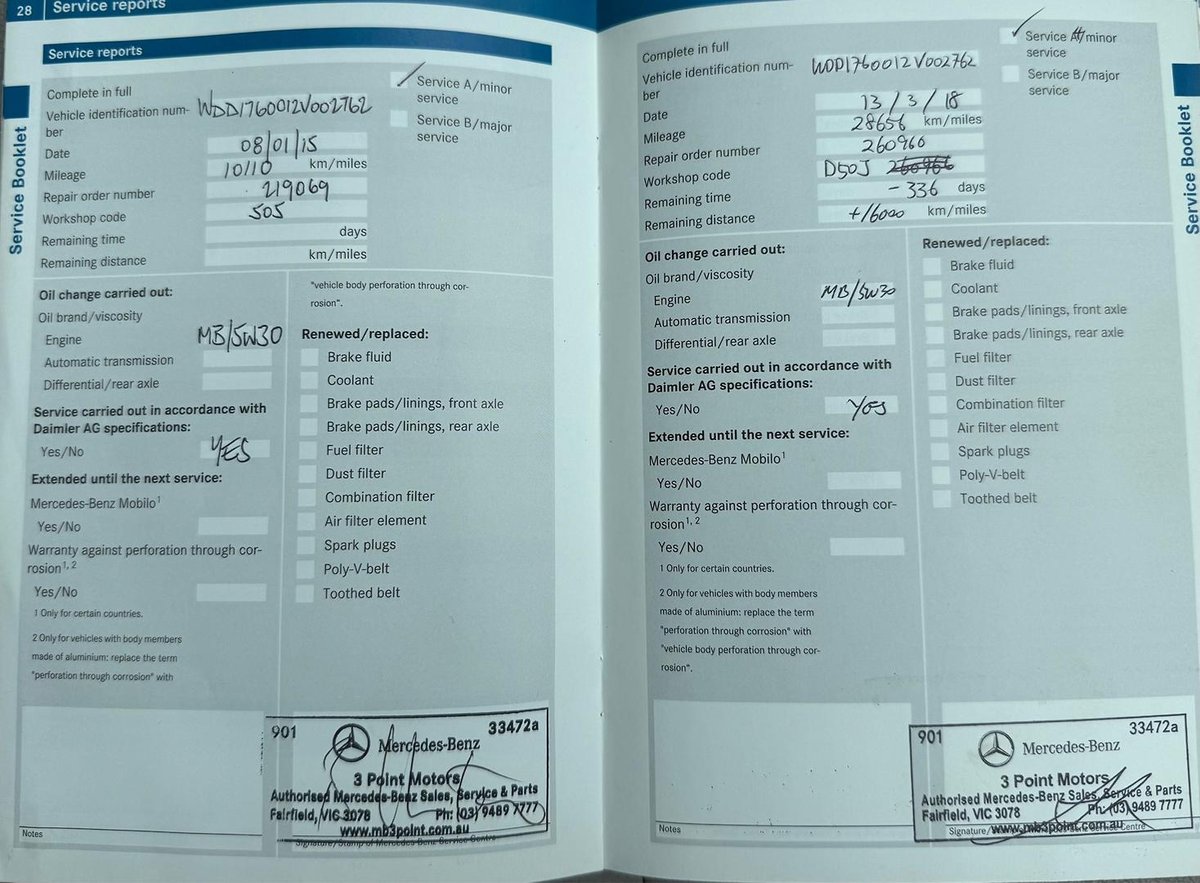 28 Service reports
Service reports
Service Booklet
Complete in full
Vehicle identification num- WDD1760012V002762
ber
Date 08/01/15
Mileage 10110 km/miles
Repair order number 219069
Workshop code 505
Remaining time days
Remaining distance km/miles
✓ Service A/minor
service
Service B/major
service
Oil change carried out:
Oil brand/viscosity
Engine MB/5W30
Automatic transmission
Differential/rear axle
Service carried out in accordance with
Daimler AG specifications:
Yes/No YES
Extended until the next service:
Mercedes-Benz Mobilo1
Yes/No
Warranty against perforation through cor-
rosion1, 2
Yes/No
1 Only for certain countries.
2 Only for vehicles with body members
made of aluminium: replace the term
"perforation through corrosion" with
"vehicle body perforation through cor-
rosion".
Renewed/replaced:
Brake fluid
Coolant
Brake pads/linings, front axle
Brake pads/linings, rear axle
Fuel filter
Dust filter
Combination filter
Air filter element
Spark plugs
Poly-V-belt
Toothed belt
901 33472a
Mercedes-Benz
3 Point Motors
Authorised Mercedes-Benz Sales, Service & Parts
Fairfield, VIC 3078 Ph: (03) 9489 7777
www.mb3point.com.au
Notes
Signature/Stamp of Mercedes-Benz Service Centre
Complete in full
Vehicle identification num- WDD1760012V002762
ber
Date 13/3/18
Mileage 28656 km/miles
Repair order number 260960
Workshop code D50J
Remaining time -336 days
Remaining distance +16000 km/miles
✓ Service A/minor
service
Service B/major
service
Service Booklet
Oil change carried out:
Oil brand/viscosity
Engine MB/5W30
Automatic transmission
Differential/rear axle
Service carried out in accordance with
Daimler AG specifications:
Yes/No Yes
Extended until the next service:
Mercedes-Benz Mobilo1
Yes/No
Warranty against perforation through cor-
rosion1, 2
Yes/No
1 Only for certain countries.
2 Only for vehicles with body members
made of aluminium: replace the term
"perforation through corrosion" with
"vehicle body perforation through cor-
rosion".
Renewed/replaced:
Brake fluid
Coolant
Brake pads/linings, front axle
Brake pads/linings, rear axle
Fuel filter
Dust filter
Combination filter
Air filter element
Spark plugs
Poly-V-belt
Toothed belt
901 33472a
Mercedes-Benz
3 Point Motors
Authorised Mercedes-Benz Sales, Service & Parts
Fairfield, VIC 3078 Ph: (03) 9489 7777
www.mb3point.com.au
Notes
Signature/ Centre